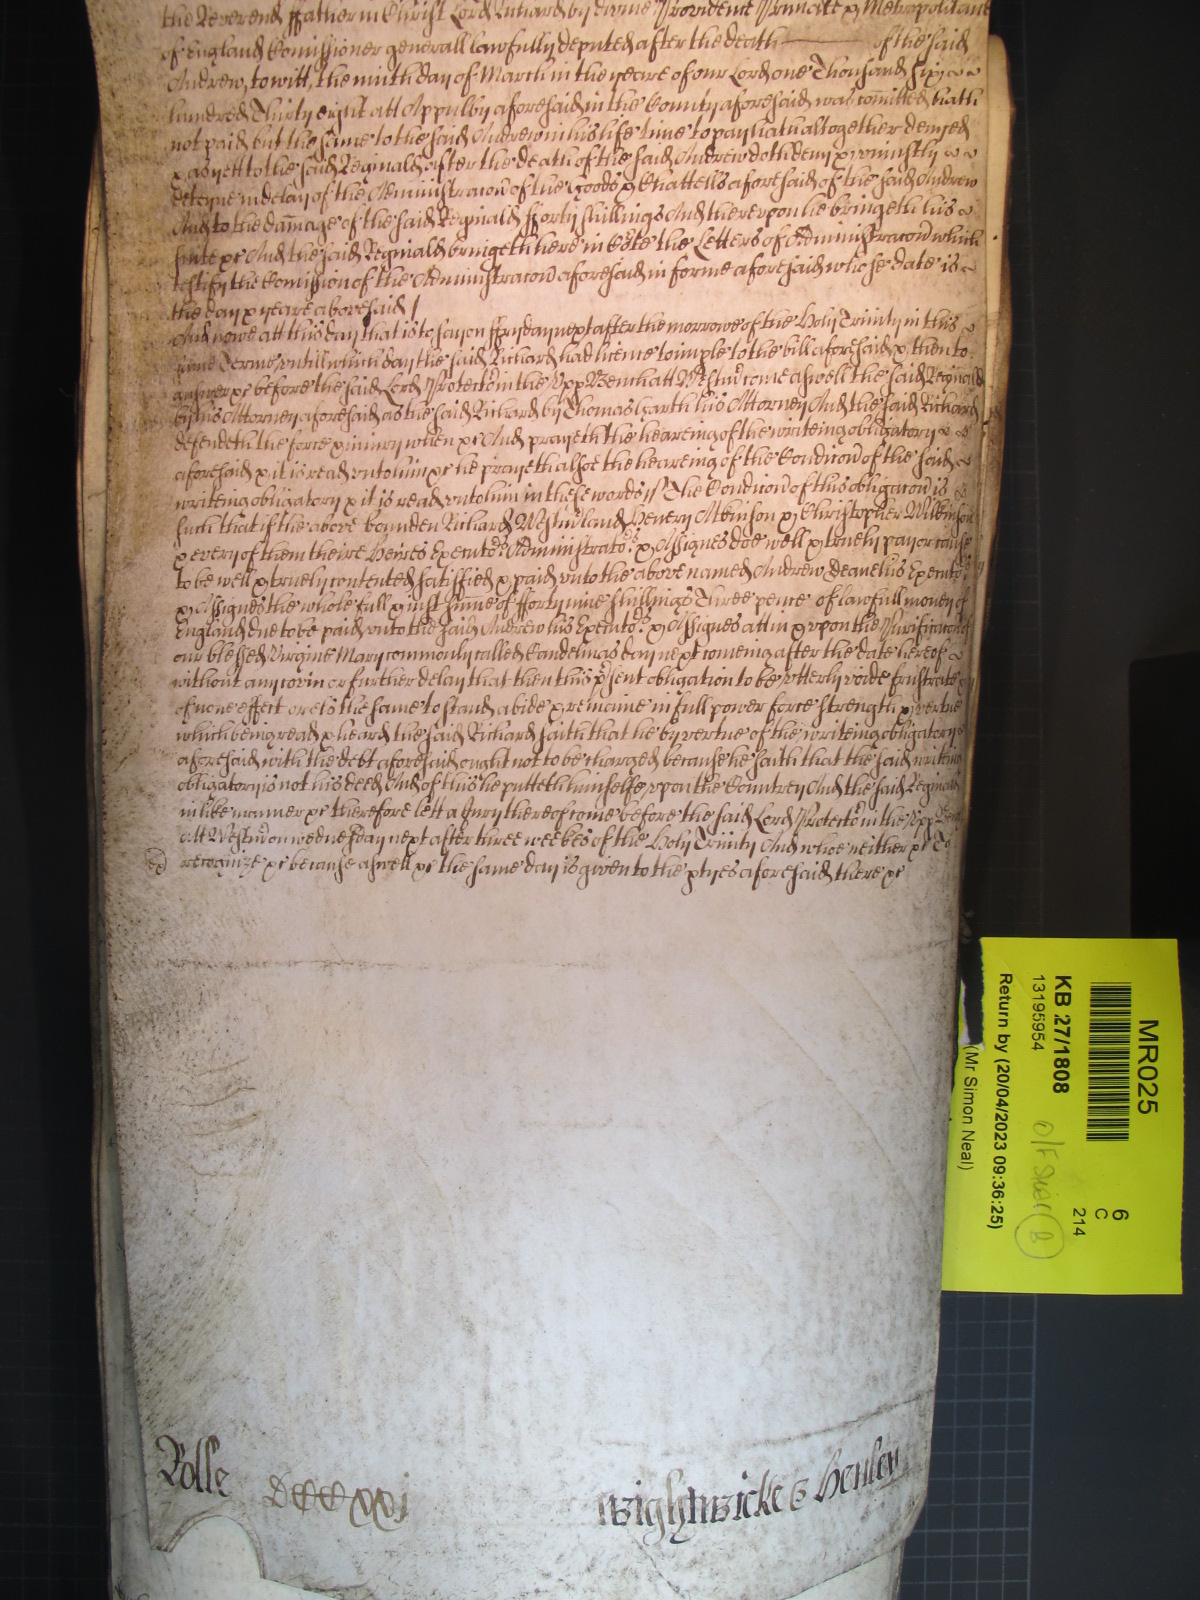 the Reverend ffather in Christ Lord Richard by divine Providence Primate & Metropolitane
of England Comissioner generall lawfully deputed after the death of the said
Andrew, to witt, the ninth day of March in the yeare of our Lord one Thousand six
hundred Thirty eight att Appulby aforesaid in the County aforesaid was comitted hath
not paid but the same to the said Andrew in his life time to pay hath altogether denyed
& as yett to the said Reginald after the death of the said Andrew doth deny & uniustly
deteyne in delay of the Administracon of the goods & Chattells aforesaid of the said Andrew
And to the damage of the said Reginald fforty shillings And thereupon he bringeth his
suite &c And the said Reginald bringeth here in Co'te the Letters of Administracon which
testify the Comission of the Administracon aforesaid in forme aforesaid whose date is
the day & yeare abovesaid /
And nowe att this day that is to say on ffryday next after the morrowe of the Holy Trinity in this
same Terme untill which day the said Richard had licence to imple to the bill aforesaid & then to
answer &c before the said Lord Protector in the Upp Bench att Westm come aswell the said Reginald
by his Attorney aforesaid as the said Richard by Thomas Garth his Attorney And the said Richard
defendeth the force & iniury when &c And prayeth the heareing of the writeing obligatory
aforesaid & it is read unto him &c he prayeth alsoe the heareing of the Condicon of the said
writeing obligatory & it is read unto him in these words // The Condicon of this obligacon is
such that if the above bounden Richard Westmland Henery Atkinson & Christopher Wilkinson
& every of them theire Heires Executors Administrators & Assignes doe well & truely pay or cause
to be well & truely contented satisfied & paid unto the above named Andrew Deane his Executors
& Assignes the whole full & iust summe of fforty nine shillings Three pence of lawfull money of
England due to be paid unto the said Andrew his Executors & Assignes att in & upon the Purificacon of
our blessed Virgine Mary commonly called Candelmas day next comeing after the date hereof
without any covin or further delay that then this p'sent obligation to be utterly voide frustrate &
of none effect or els the same to stand abide & remaine in full power force strength & vertue
which being read & heard the said Richard saith that he by vertue of the writeing obligatory
aforesaid with the debt aforesaid ought not to be charged because he saith that the said writeing
obligatory is not his deed And of this he putteth himselfe upon the Countrey And the said Reginald
in like manner &c therefore lett a Jury thereof come before the said Lord Protector in the Upp Bench
att Westm on wednesday next after three weekes of the Holy Trinity And who neither &c To
recognize &c because aswell &c the same day is given to the ptyes aforesaid there &c
Rolle DCCCxxj Wightwicke & Henley
MR025
KB 27/1808
13195954
Return by (20/04/2023 09:36:25)
(Mr Simon Neal)
6
C
214